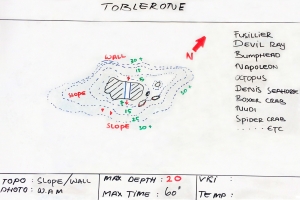 TOBLERONE
WALL
20+
N
FUSILLIER
DEVIL RAY
BUMPHEAD
NAPOLEON
OCTOPUS
DENIS SEAHORSE
BOXER CRAB
NUDI
SPIDER CRAB
..... ETC
SLOPE
15
25
30+
SLOPE
TOPO : SLOPE/WALL
PHOTO : W.A.M
MAX DEPTH : 20
MAX TIME : 60'
VRI :
TEMP :